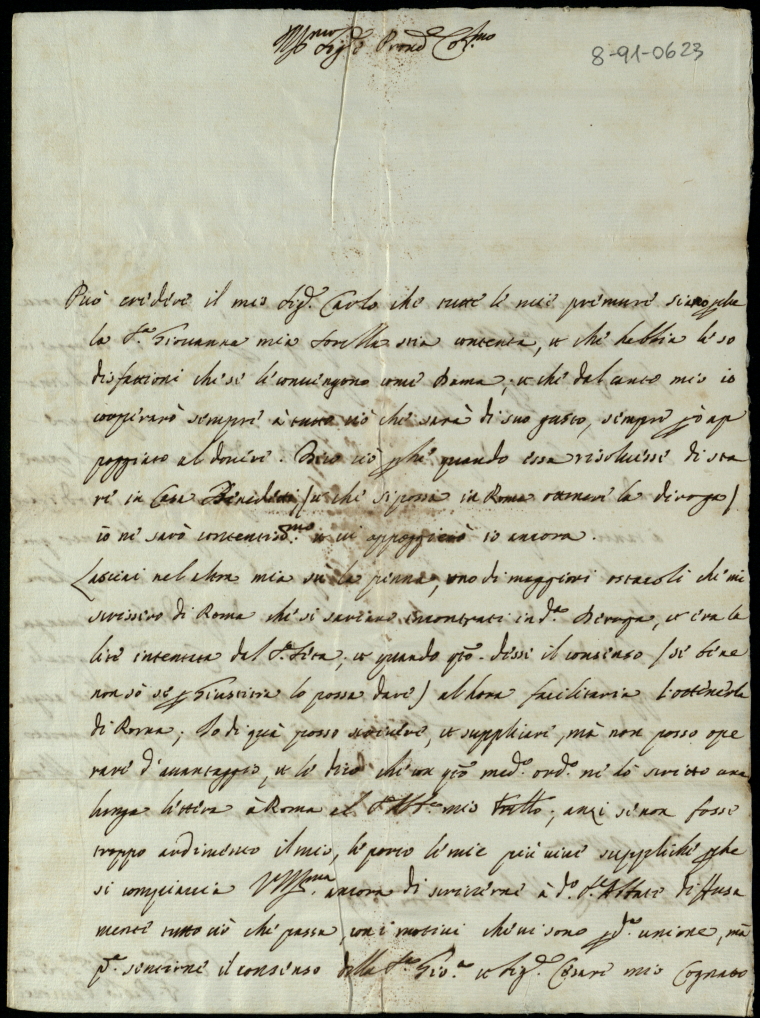 Ill.mo Sig.r Pron Col.mo
8-91-0623
Può credere il mio Sig.r Carlo che tutte le mie premure siano p che
la S.ra Giovanna mia sorella stia contenta, et che habbia le so
disfattioni che se le convengono come Dama; et che dal canto mio io
cooperarò sempre à tutto ciò che sarà di suo gusto, sempre però ap
poggiato al dovere. Dico ciò p che quando essa risolvesse di sta
re in Casa Benedetti (et che si possa in Roma ottenere la diroga)
io ne sarò contentiss.mo et vi appoggierò io ancora.
Lasciai nel altra mia sù la penna, uno di maggiori ostacoli che mi
scrissero di Roma che si sariano incontrati in d.a Deroga, et era la
lite intentata dal S.r ; et quando q.to desse il consenso (se bene
non sò se p Giustitia lo possa dare) al hora facilitaria l'ottenerla
di Roma; Io di quà posso scrivere, et supplicare, mà non posso ope
rare d'avantaggio, et le dico che con q.to med.o ord.o ne hò scritto una
lunga lettera à Roma al S.r Ab.te mio fratello; anzi se non fosse
troppo ardimento il mio, le porto le mie più vive suppliche p che
si compiaccia V.S. Ill.ma ancora di scriverne à d.o S.r Abbate diffusa
mente tutto ciò che passa, con i motivi che vi sono p d.a unione, mà
p.a sentirne il consenso della S.ra Gio.a et Sig.r Cesare mio Cognato